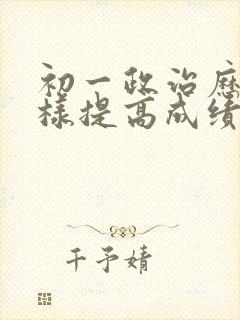 初一政治历
样提高成绩
千予婧